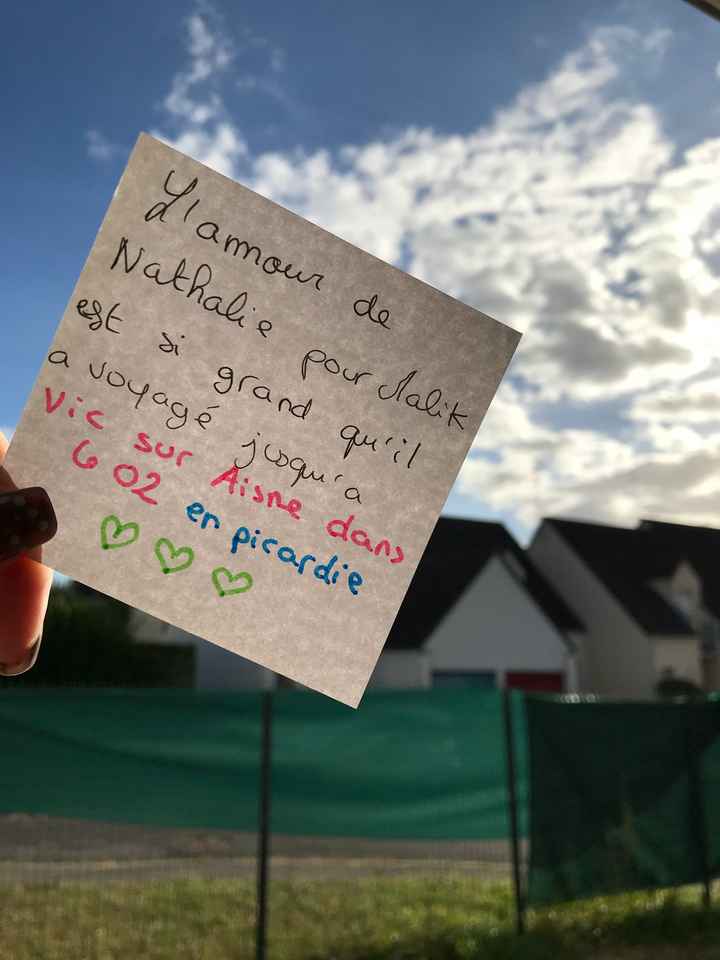 L'amour de
Nathalie pour Malik
est si grand qu'il
a voyagé jusqu'a
Vic sur Aisne dans
6 02 en picardie